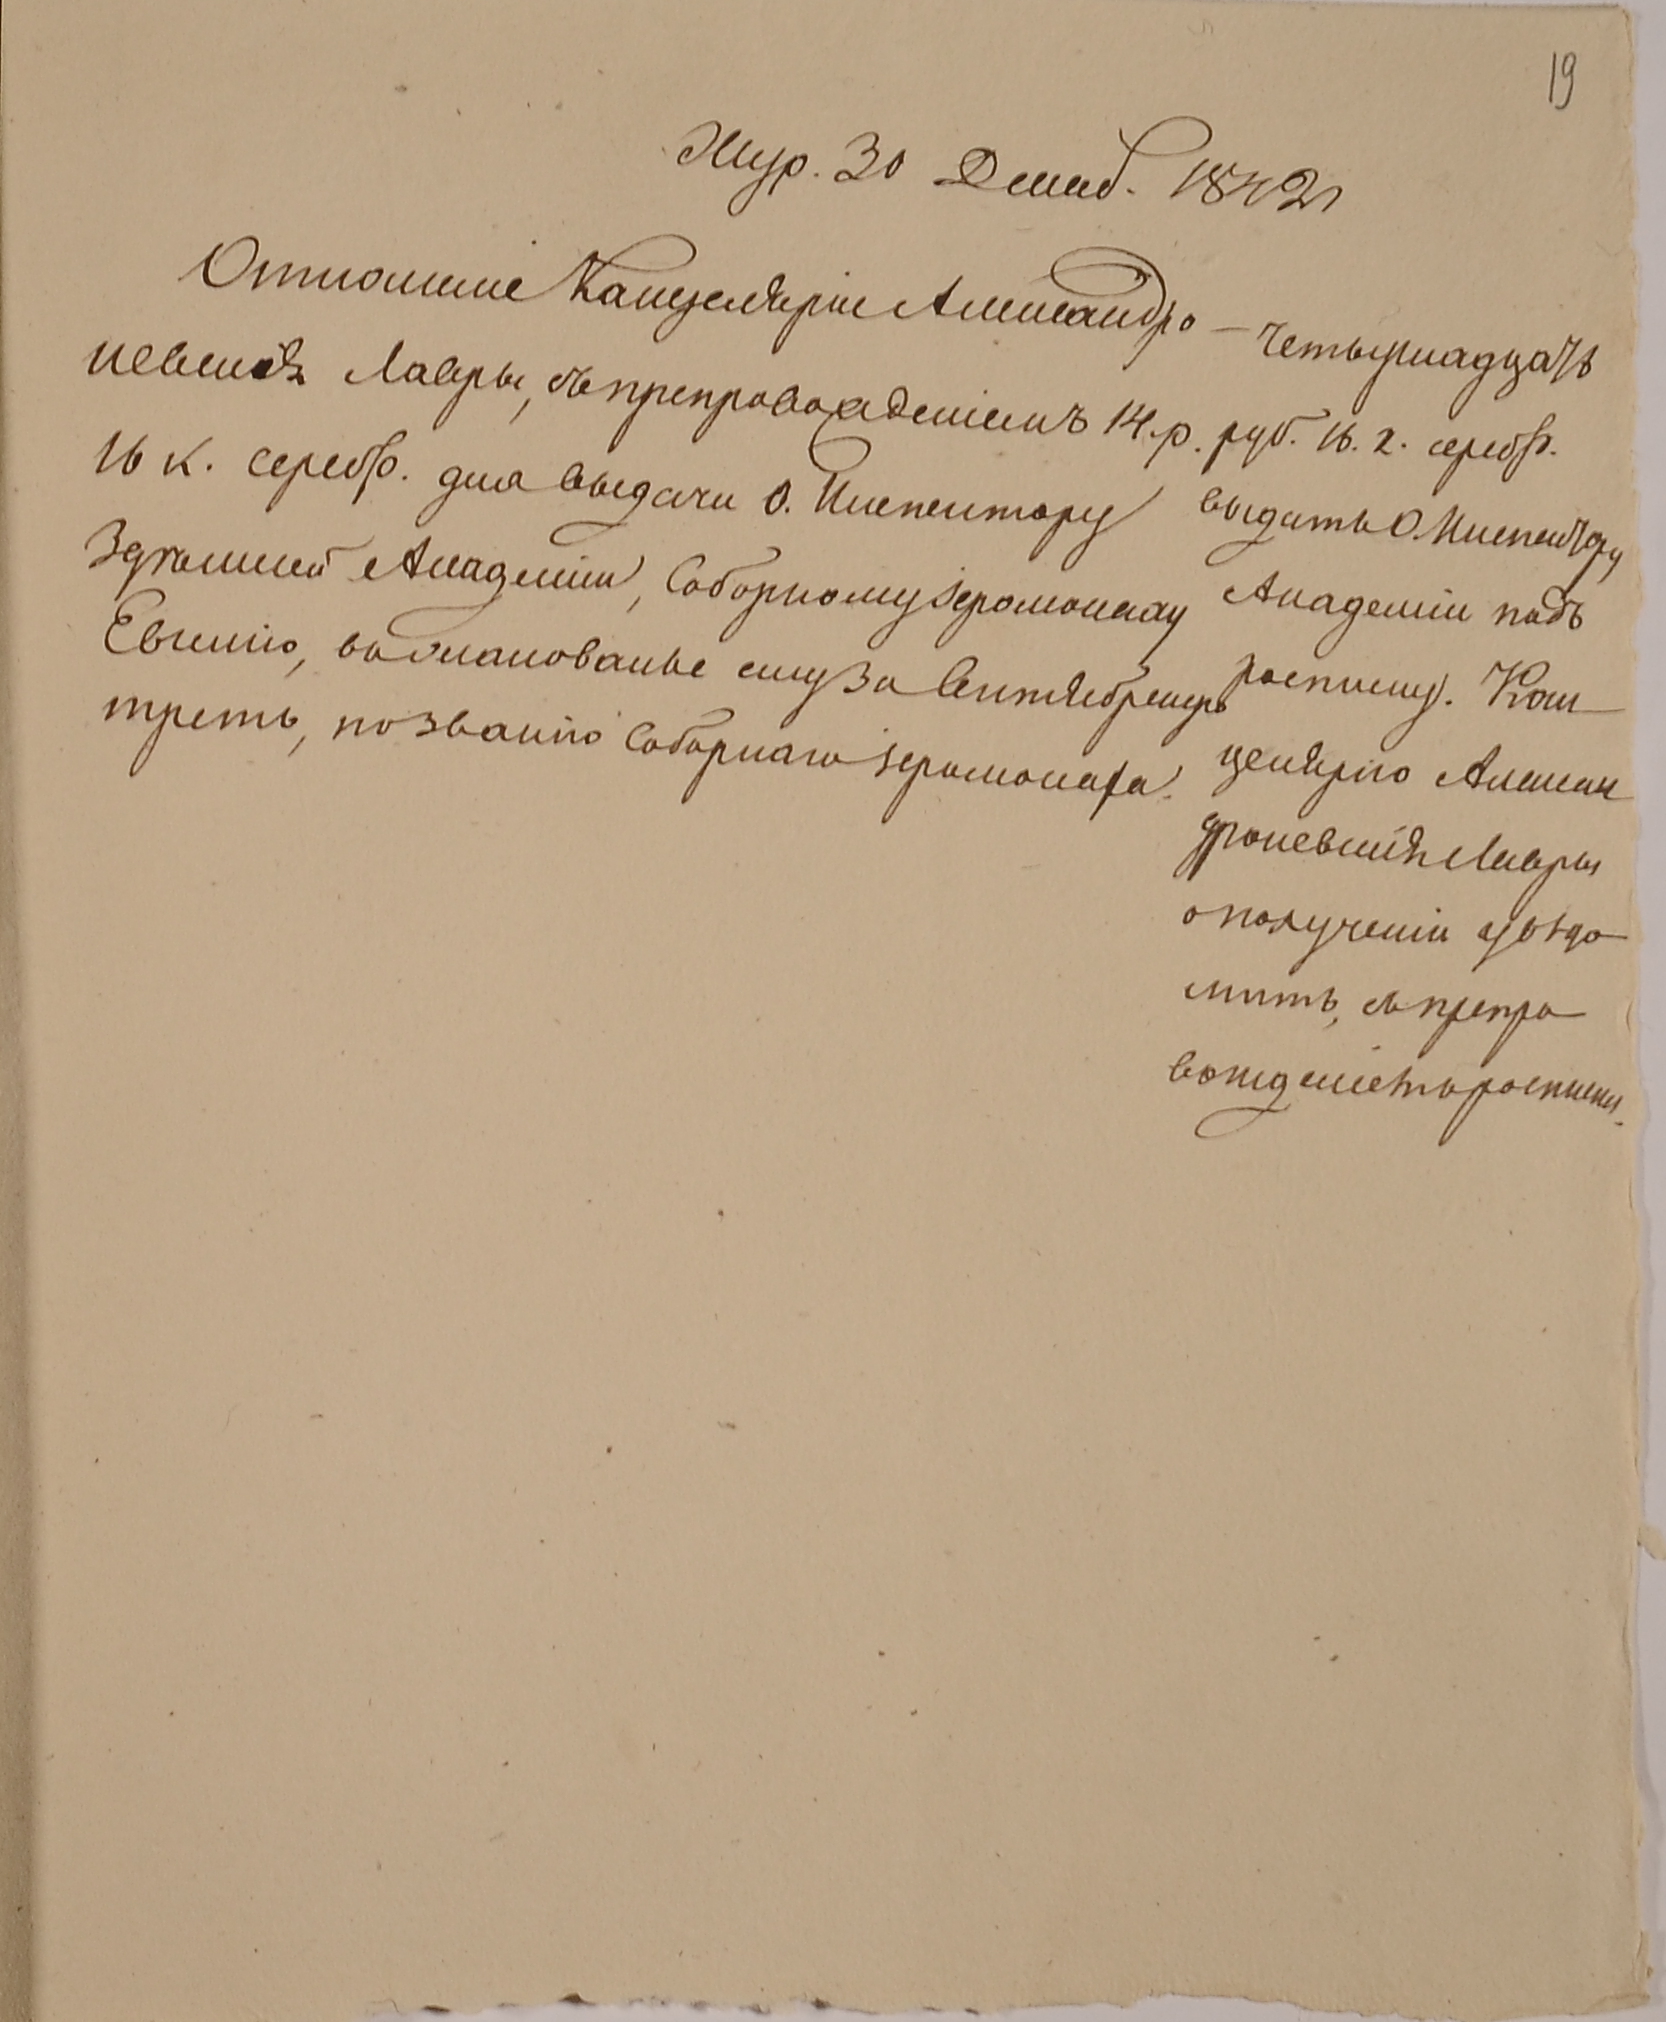 19
Жур. 30 Декаб. 1842
Отношеніе Канцеляріи Александро
невскія Лавры, съ препровожденіемъ 14. р.
16 к. серебр. для выдачи О. Инспектору
Здѣшней Академіи, Соборному Іеромонаху
Евсевію, жалованье ему за Сентябрьскую
треть, по званію Соборнаго Іеромонаха.
— Четырнадцать
руб. 16. к. серебр.
выдать О. Инспектору
Академіи подъ
росписку. Кан
целярію Алексан
дроневскія Лавры
о полученіи увѣдо
мить, съ препро
вожденіемъ росписки.